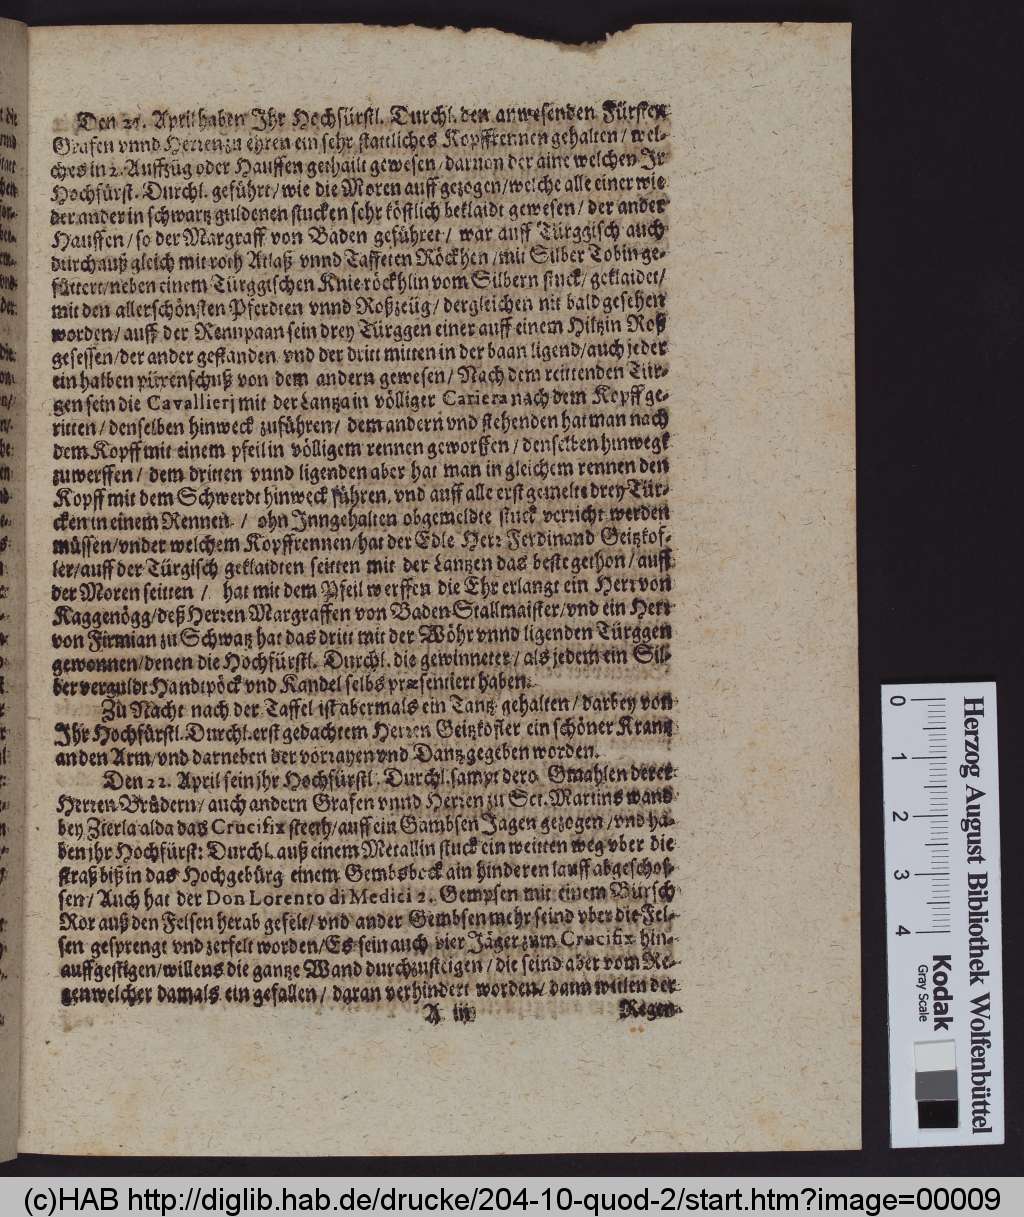 Den 21. April haben Ihr Hochfürstl. Durchl. den anwesenden Fürsten
Grafen vnnd Herren zu ehren ein sehr stattliches Kopffrennen gehalten / wel-
ches in 2. Auffzüg oder Hauffen gethailt gewesen / daruon der aine welchen Ir
Hochfürst. Durchl. geführt / wie die Moren auff gezogen / welche alle einer wie
der ander in schwartz guldenen stucken sehr köstlich beklaidt gewesen / der ander
Hauffen / so der Margraff von Baden geführet / war auff Türggisch auch
durchauß gleich mit roth Atlaß vnnd Taffeten Röckhen / mit Silber Tobin ge-
füttert / neben einem Türggischen Knie röckhlin vom Silbern stuck / geklaidet /
mit den allerschönsten Pferdten vnnd Roßzeüg / dergleichen nit bald gesehen
worden / auff der Rennpaan sein drey Türggen einer auff einem Hiltzin Roß
gesessen / der ander gestanden vnd der dritt mitten in der baan ligend / auch jeder
ein halben püxenschuß von dem andern gewesen / Nach dem reittenden Tür-
gen sein die Cavallierj mit der Lantza in völliger Cariera nach dem Kopff ge-
ritten / denselben hinweck zuführen / dem andern vnd stehenden hat man nach
dem Kopff mit einem pfeil in völligem rennen geworffen / denselben hinwegk
zuwerffen / dem dritten vnnd ligenden aber hat man in gleichem rennen den
Kopff mit dem Schwerdt hinweck führen, vnd auff alle erst gemelte drey Tür-
cken in einem Rennen / ohn Inngehalten obgemeldte stuck verricht werden
müssen / vnder welchem Kopffrennen / hat der Edle Herr Ferdinand Geitzkof-
ler / auff der Türgisch geklaidten seitten mit der Lantzen das beste gethon / auff
der Moren seitten / hat mit dem Pfeil werffen die Ehr erlangt ein Herr von
Kaggenögg / deß Herren Margraffen von Baden Stallmaister / vnd ein Herr
von Firmian zu Schwatz hat das dritt mit der Wöhr vnnd ligenden Türggen
gewonnen / denen die Hochfürstl. Durchl. die gewinneter / als jedem ein Sil-
ber verguldt Handtpöck vnd Kandel selbs præsentiert haben.
Zu Nacht nach der Taffel ist abermals ein Tantz gehalten / darbey von
Ihr Hochfürstl. Durchl. erst gedachtem Herren Geitzkofler ein schöner Krantz
an den Arm / vnd darneben der vorrayen vnd Dantz gegeben worden.
Den 22. April sein jhr Hochfürstl. Durchl. sampt dero Gmahlen derer
Herren Brüdern / auch andern Grafen vnnd Herren zu Sct. Martins wand
bey Zierla alda das Crucifix steeth / auff ein Gambsen Jagen gezogen / vnd ha-
ben jhr Hochfürst: Durchl. auß einem Metallin stuck ein weitten weg vber die
straß biß in das Hochgebürg einem Gembsbock ain hinderen lauff abgeschos-
sen / Auch hat der Don Lorento di Medici 2. Gempsen mit einem Bürsch
Ror auß den Felsen herab gefelt / vnd ander Gembsen mehr seind vber die Fel-
sen gesprengt vnd zerfelt worden / Es sein auch vier Jäger zum Crucifix hin-
auff gestigen / willens die gantze Wand durchzusteigen / die seind aber vom Re-
gen welcher damals ein gefallen / daran verhindert worden / dann willen der
A iij
Regen-
0 1 2 3 4
Herzog August Bibliothek Wolfenbüttel
Kodak
Gray Scale
(c)HAB http://diglib.hab.de/drucke/204-10-quod-2/start.htm?image=00009